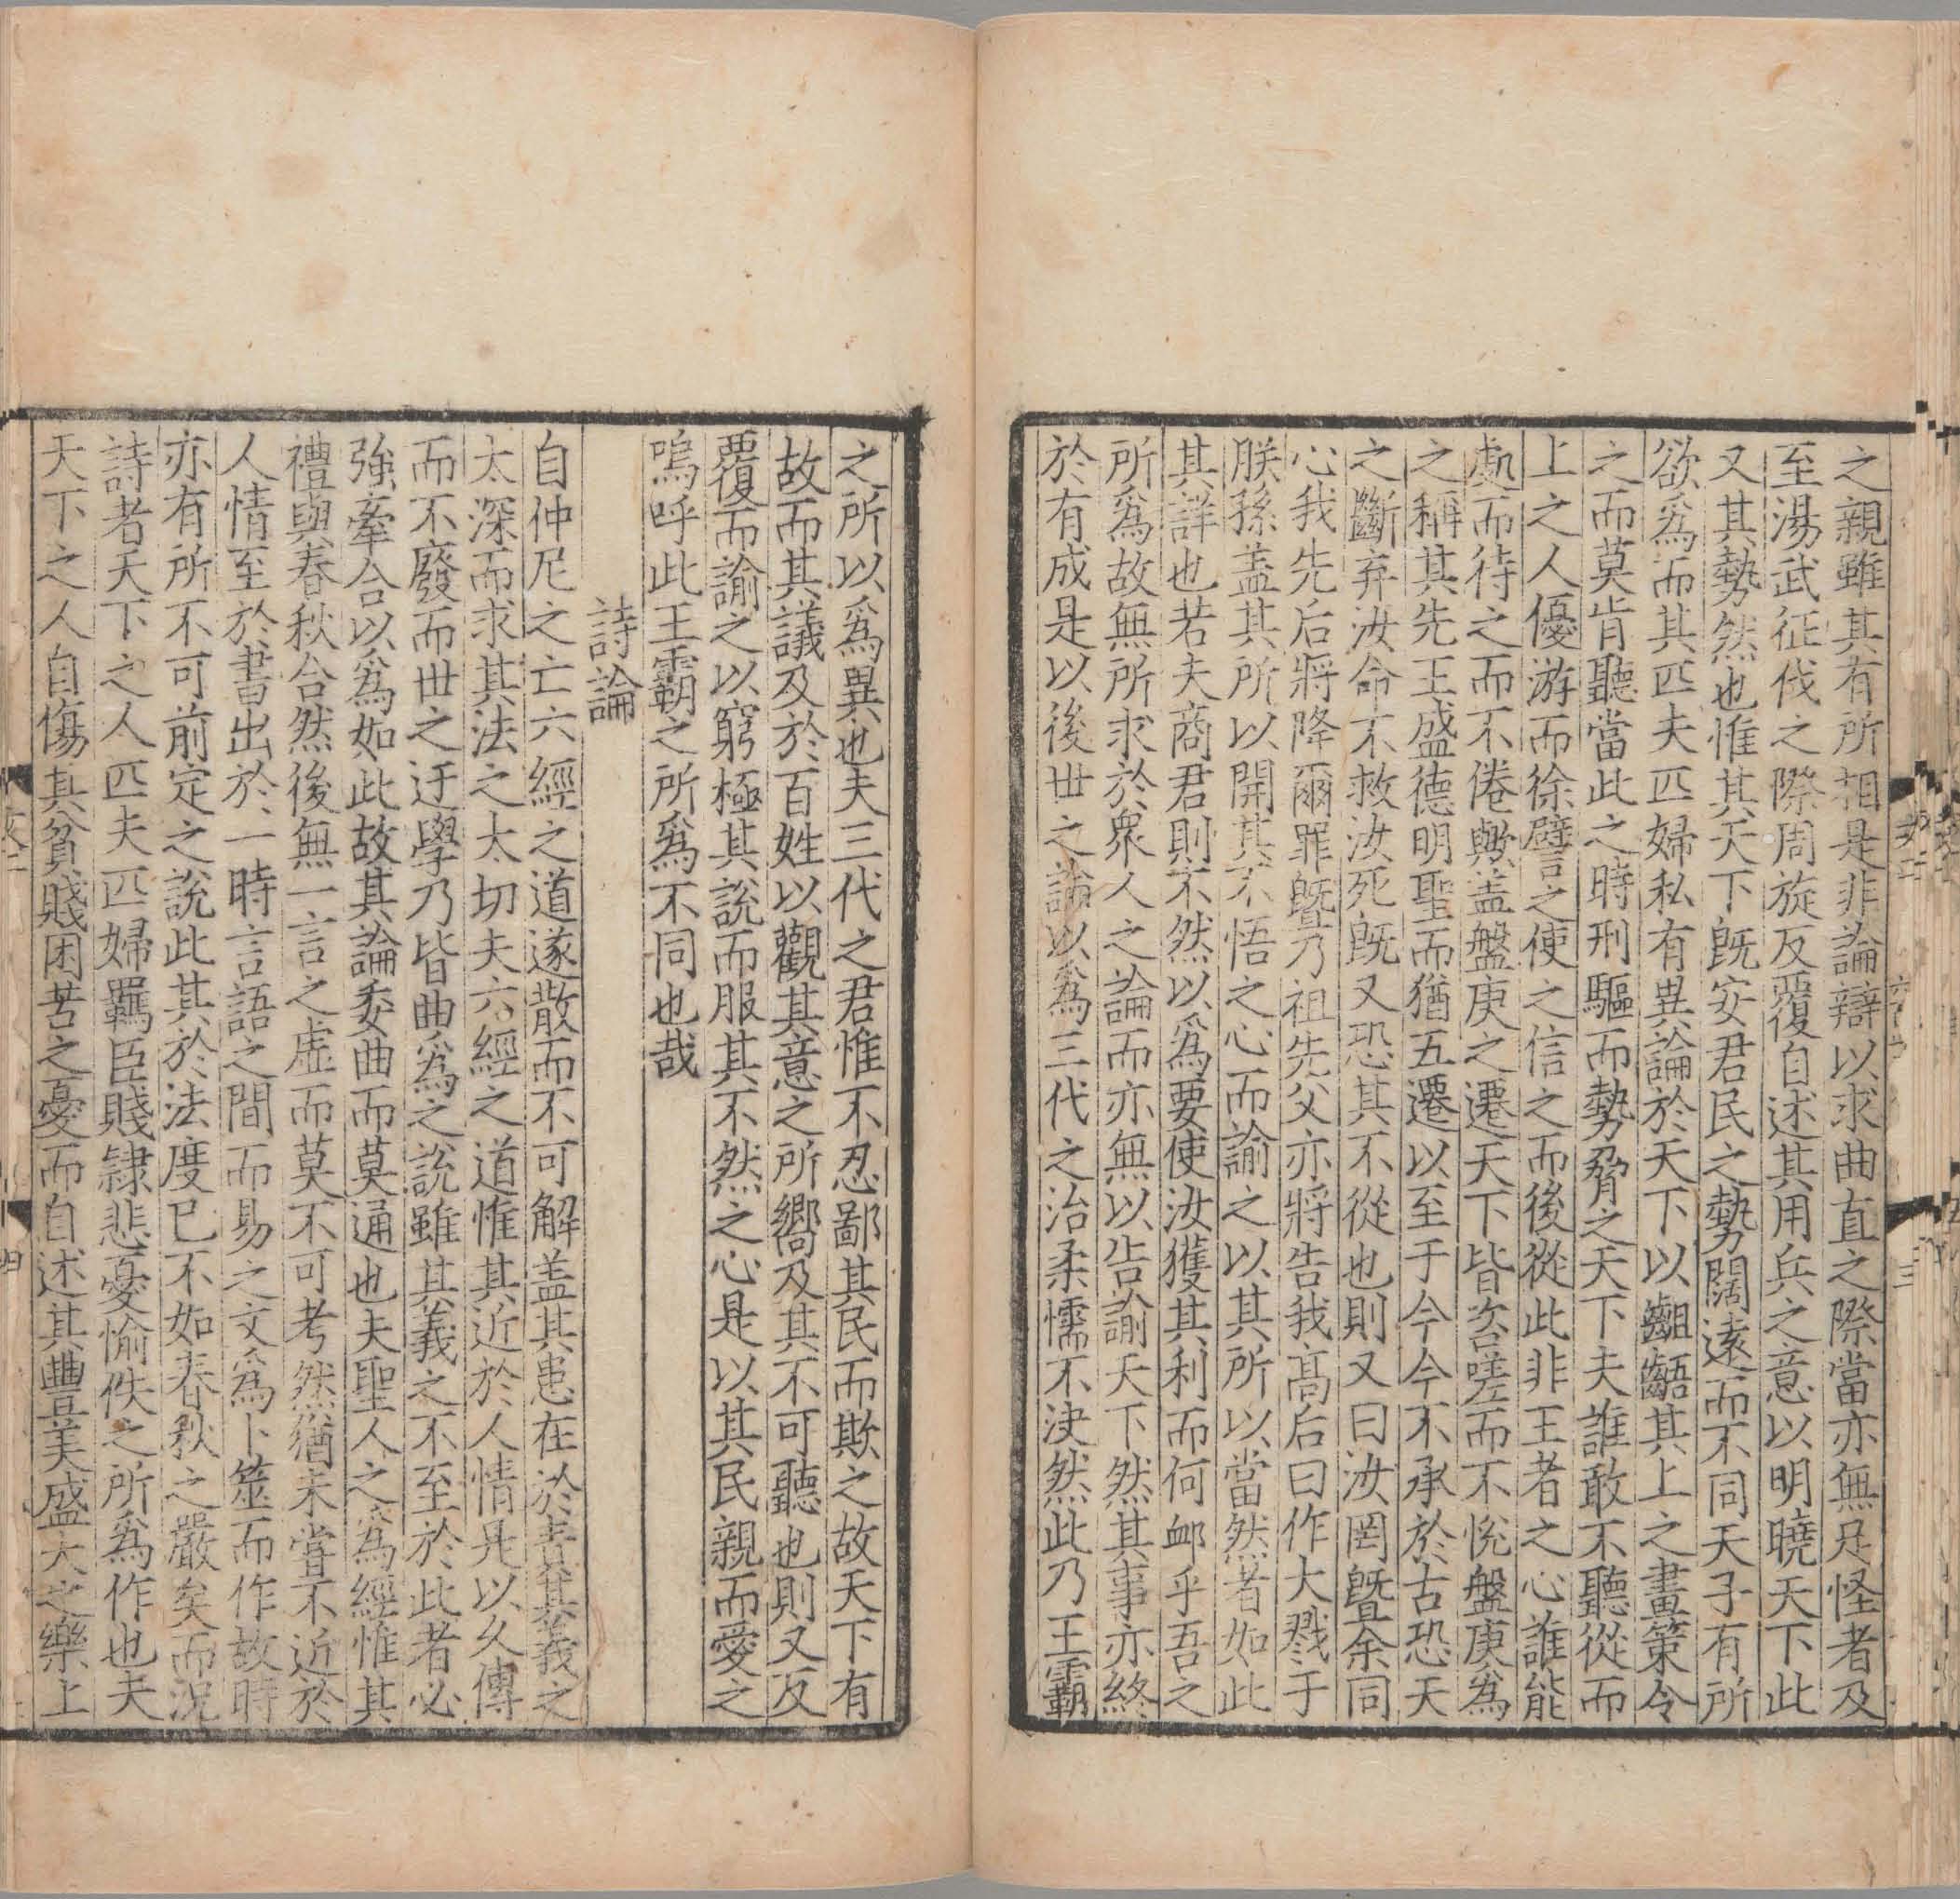 之親雖其有所相是非論辯以求曲直之際當亦無足怪者及
至湯武征伐之際周旋反覆自述其用兵之意以明曉天下此
又其勢然也惟其天下既安君民之勢闊遠而不同天子有所
欲爲而其匹夫匹婦私有異論於天下以齟齬其上之畫策令
之而莫肯聽當此之時刑驅而勢脅之天下夫誰敢不聽從而
上之人優游而徐譬之使之信之而後從此非王者之心誰能
處而待之而不倦歟盖盤庚之遷天下皆咨嗟而不悅盤庚爲
之稱其先王盛德明聖而猶五遷以至于今今不承於古恐天
之斷弃汝命不救汝死既又恐其不從也則又曰汝罔暨余同
心我先后將降爾罪暨乃祖先父亦將告我髙后曰作大戮于
朕孫盖其所以開其不悟之心而諭之以其所以當然者如此
其詳也若夫商君則不然以爲要使汝獲其利而何䘏乎吾之
所爲故無所求於衆人之論而亦無以告諭天下然其事亦終
於有成是以後世之論以爲三代之治柔懦不決然此乃王霸
之所以爲異也夫三代之君惟不忍鄙其民而欺之故天下有
故而其議及於百姓以觀其意之所嚮及其不可聽也則又反
覆而諭之以窮極其說而服其不然之心是以其民親而愛之
嗚呼此王霸之所爲不同也哉
詩論
自仲尼之亡六經之道遂散而不可解盖其患在於責其義之
太深而求其法之太切夫六經之道惟其近於人情是以久傳
而不廢而世之迂學乃皆曲爲之說雖其義之不至於此者必
強牽合以爲如此故其論委曲而莫通也夫聖人之爲經惟其
禮與春秋合然後無一言之虛而莫不可考然猶未嘗不近於
人情至於書出於一時言語之間而易之文爲卜筮而作故時
亦有所不可前定之說此其於法度已不如春秋之嚴矣而況
詩者天下之人匹夫匹婦羈臣賤隷悲憂愉佚之所爲作也夫
天下之人自傷其貧賤困苦之憂而自述其豐美盛大之樂上